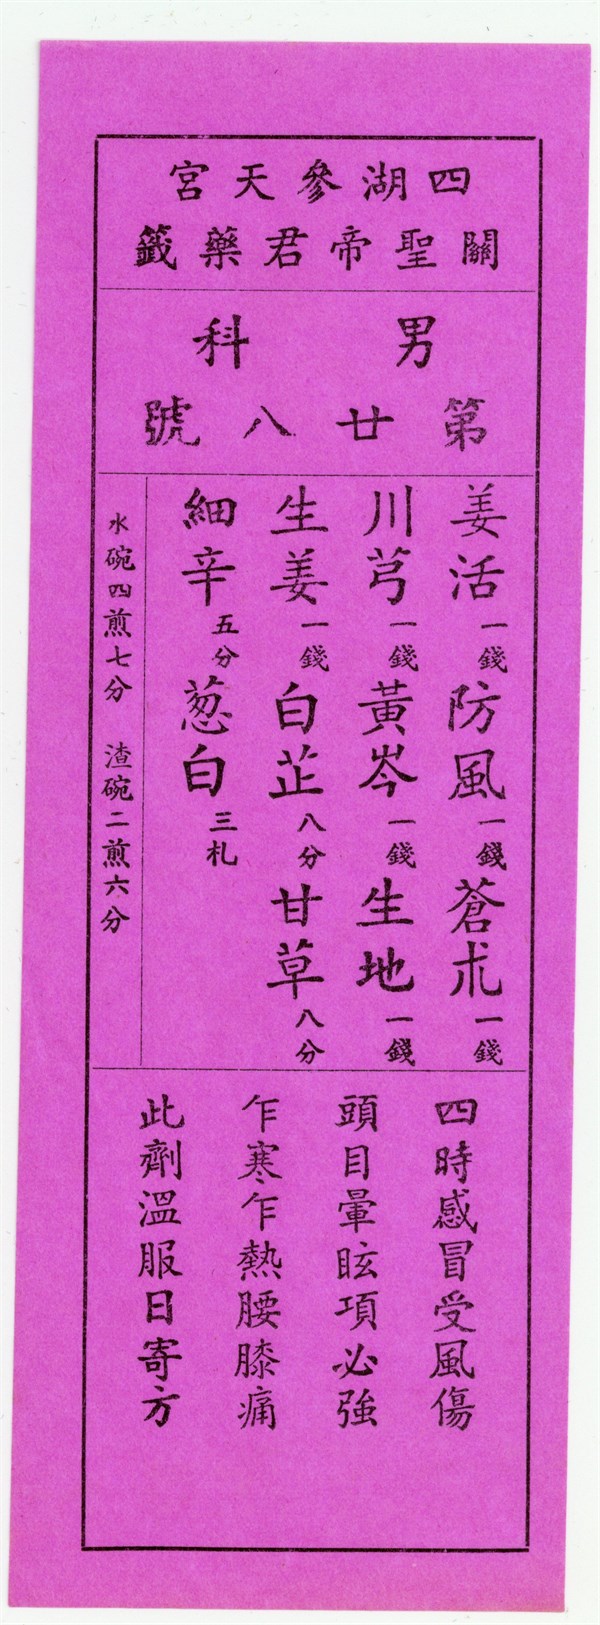 四湖參天宮
關聖帝君藥籤
男科
第廿八號
姜活一錢 防風一錢 蒼朮一錢
川芎一錢 黃岑一錢 生地一錢
生姜一錢 白芷八分 甘草八分
細辛五分 葱白三札
水碗四煎七分 渣碗二煎六分
四時感冒受風傷
頭目暈眩項必強
乍寒乍熱腰膝痛
此劑溫服日寄方